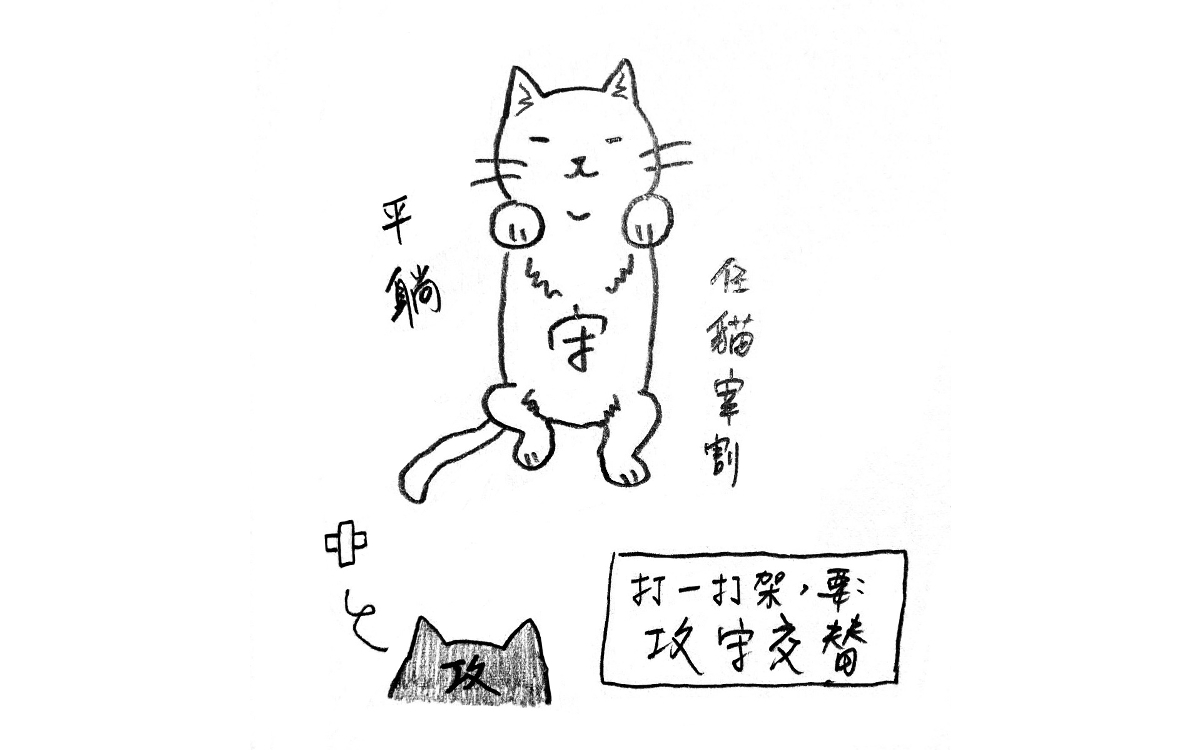 平躺
任貓宰割
守
攻
打一打架，要：
攻守交替